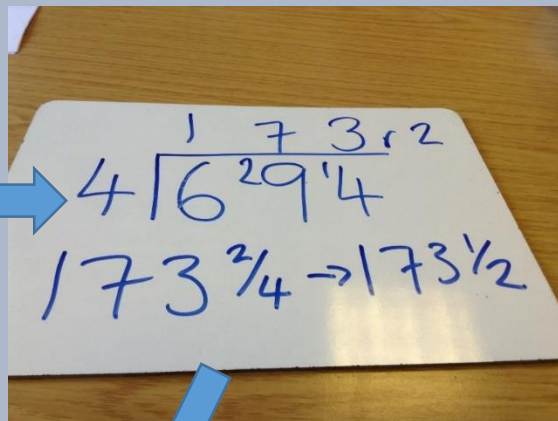 1 7 3 r 2
4 6 ²9 ¹4
173 ²/4 → 173 ½